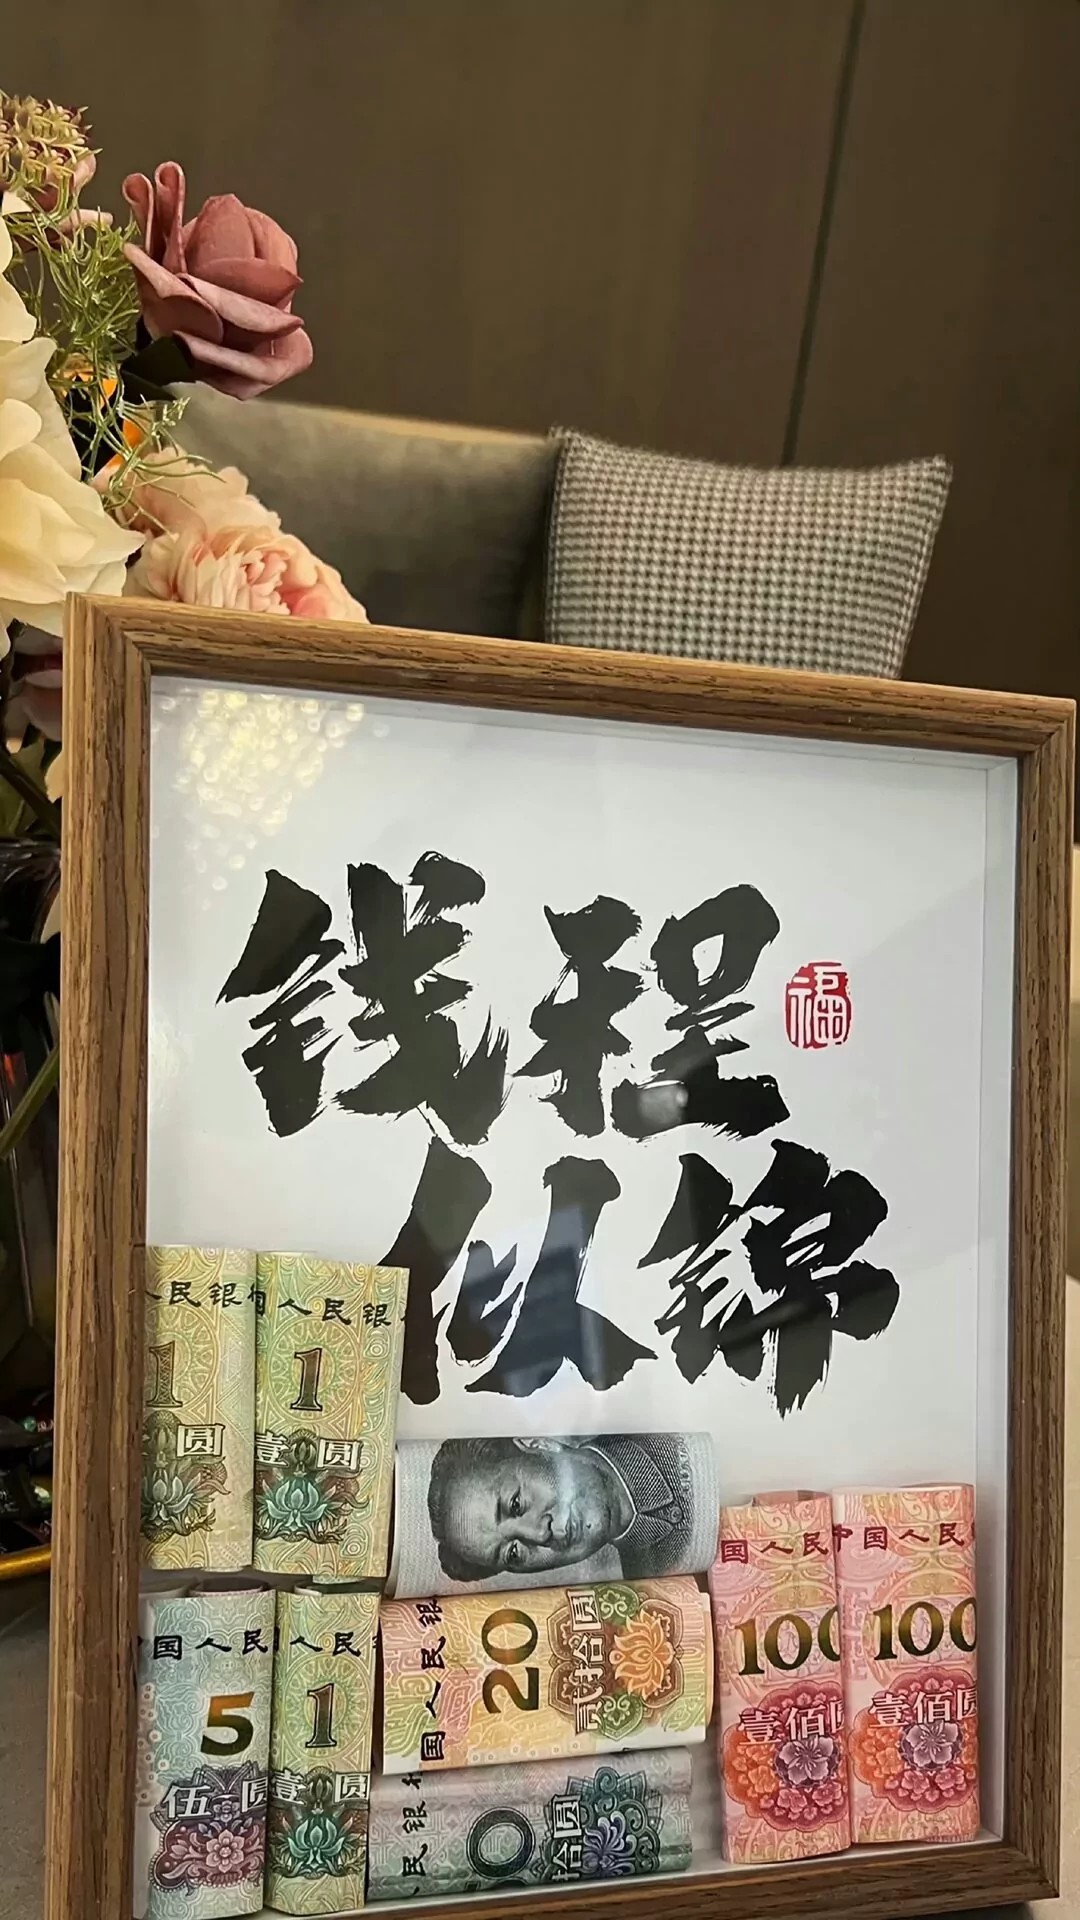 钱程
福
似锦
人民银行
1
圆
人民银
1
壹圆
国人民
5
伍圆
人民
1
壹圆
国人民银
20
贰拾圆
民银
0
拾圆
国人民
100
壹佰圆
中国人民
100
壹佰圆